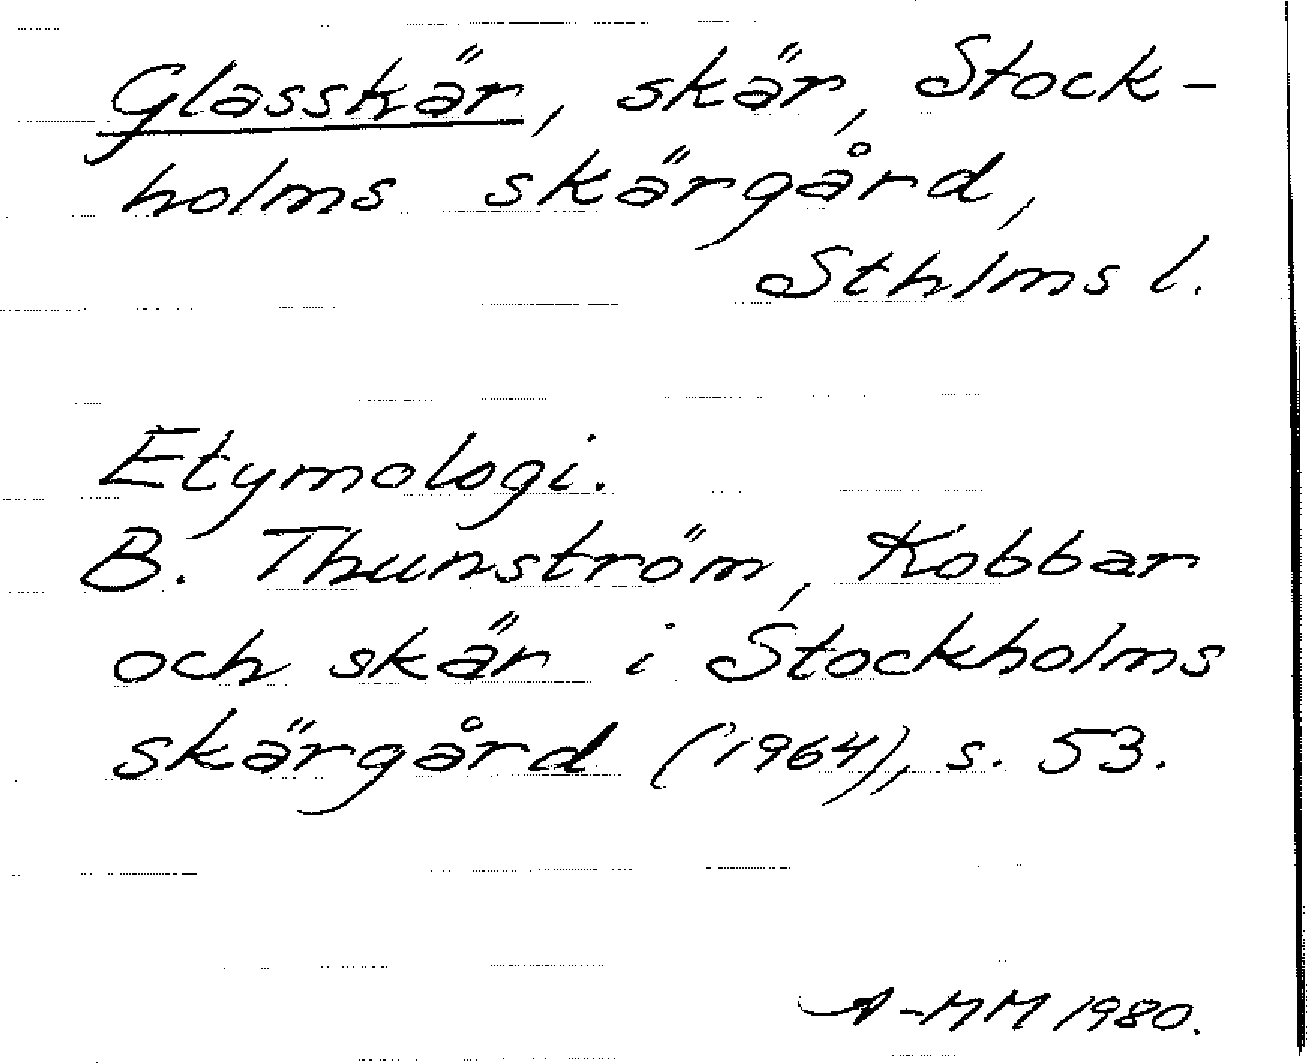 Glasskär, skär, Stock-
holms skärgård,
Sthlms l.
Etymologi.
B. Thunström, Kobbar
och skär i Stockholms
skärgård (1964), s. 53.
A-MM 1980.